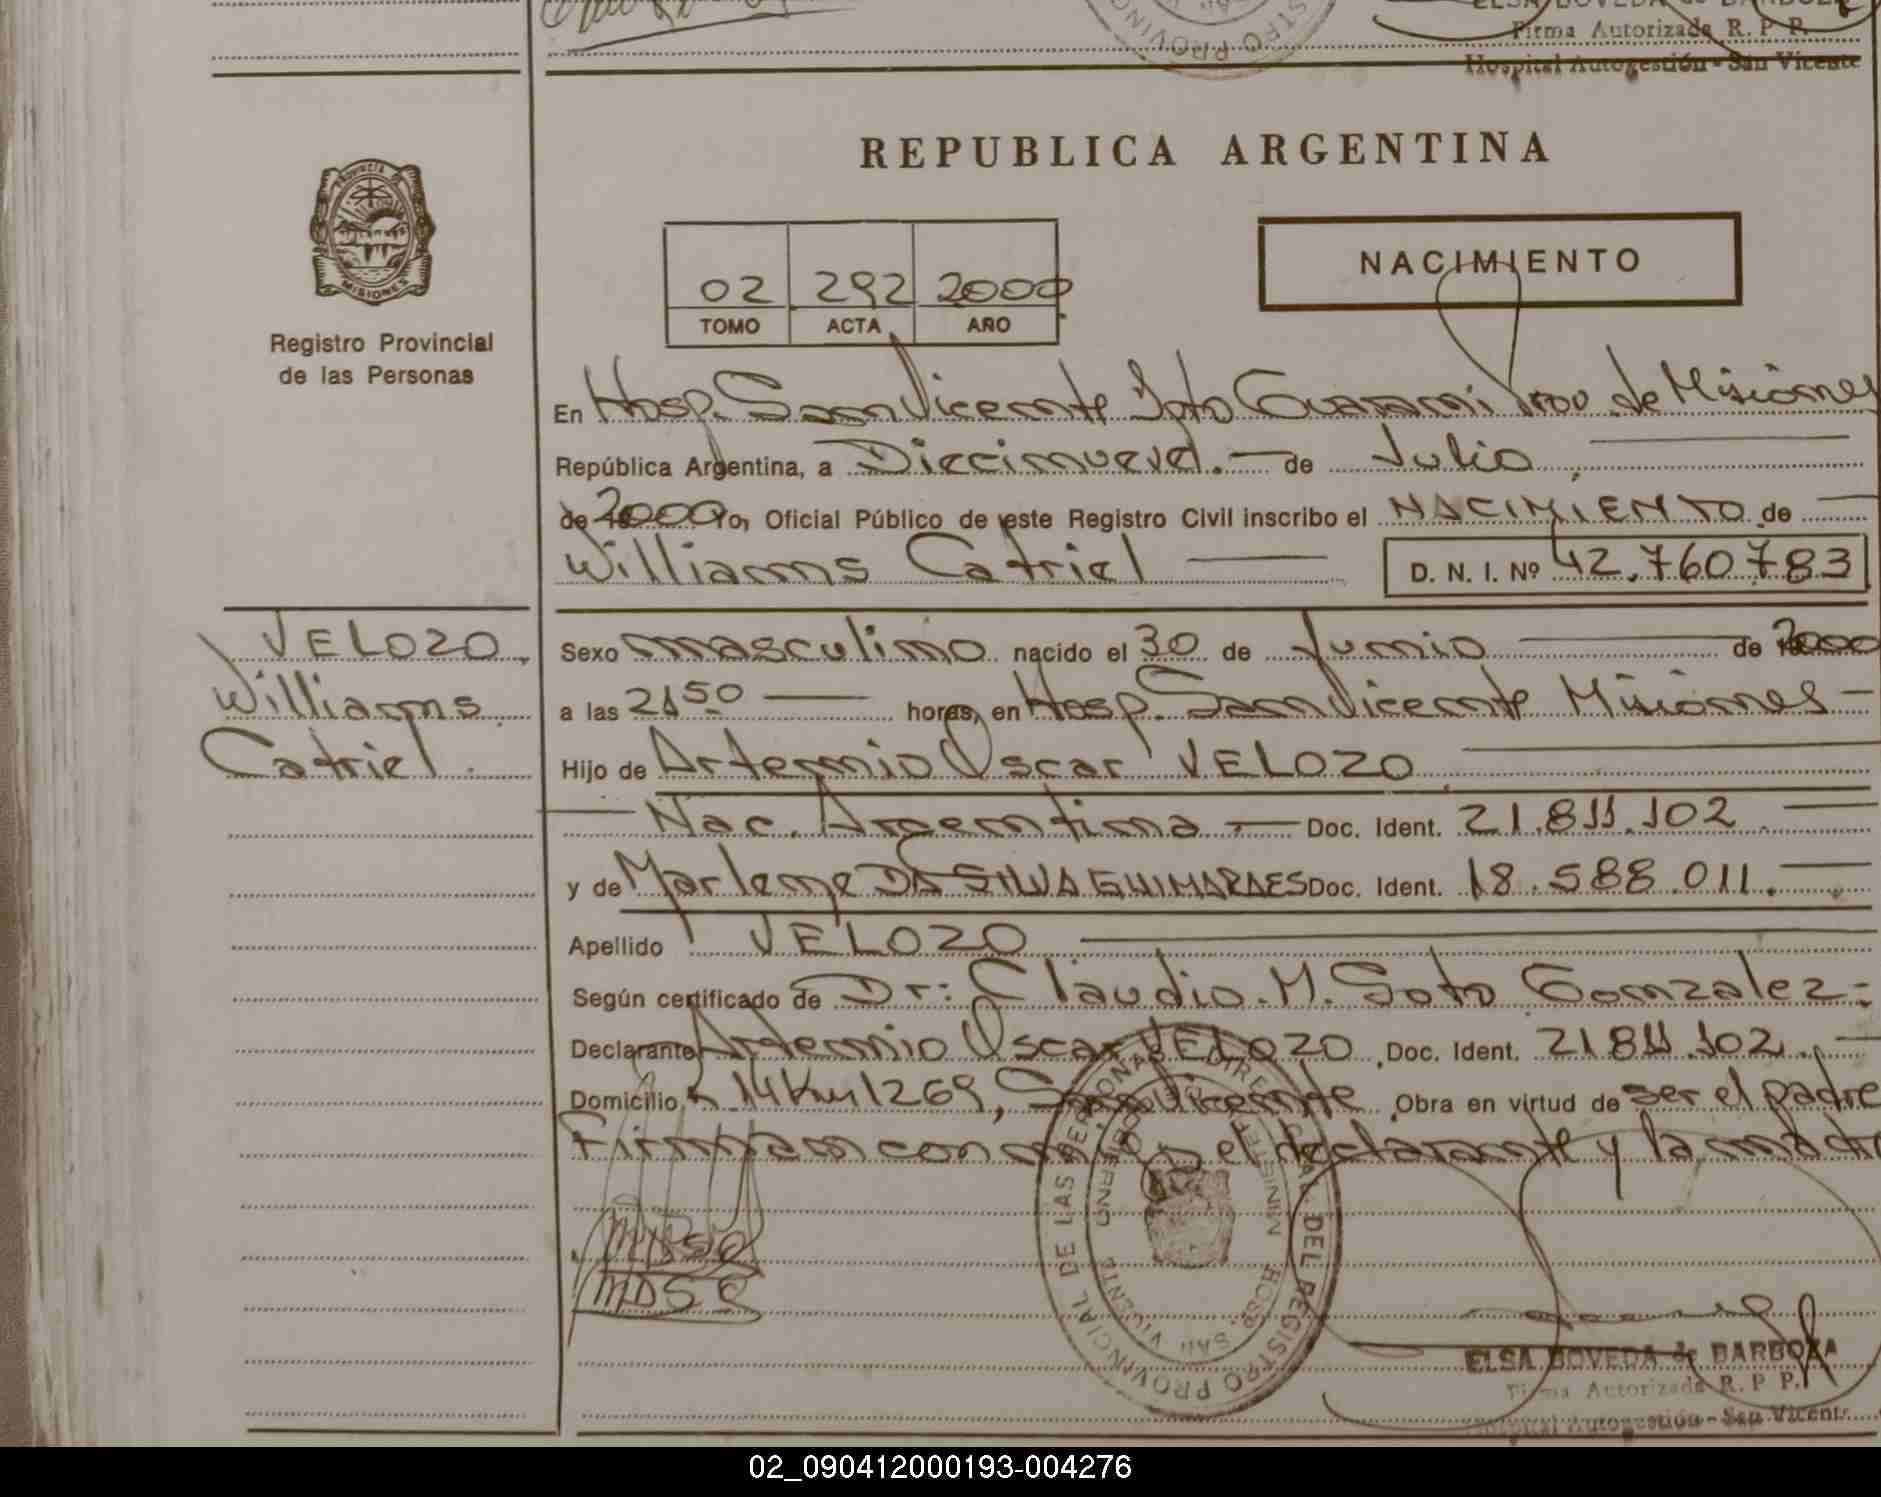 ELSA BOVEDA de BARBOZA
Firma Autorizada R. P. P.
Hospital Autogestión - San Vicente
REPUBLICA ARGENTINA
PROVINCIA
MISIONES
Registro Provincial
de las Personas
02 292 2000
TOMO ACTA AÑO
NACIMIENTO
En Hosp. San Vicente Dpto Guaraní Prov. de Misiones
República Argentina, a Diecinueve.— de Julio
de 2000 Yo, Oficial Público de este Registro Civil inscribo el NACIMIENTO de
Williams Catriel D. N. I. Nº 42.760.783
VELOZO
Williams
Catriel
Sexo masculino nacido el 30 de Junio de 2000
a las 21 50 horas, en Hosp. San Vicente Misiones
Hijo de Artemio Oscar VELOZO
Nac. Argentina — Doc. Ident. 21.811.102
y de Marlene DA SILVA GUIMARAES Doc. Ident. 18.588.011.
Apellido VELOZO
Según certificado de Dr: Claudio. M. Soto Gonzalez
Declarante Artemio Oscar VELOZO Doc. Ident. 21811.102
Domicilio 14 Km 1269, San Vicente Obra en virtud de ser el padre
Firman con el declarante y la madre
MDSG
MDSG
DIRECC. GRAL. DEL REGISTRO PROVINCIAL DE LAS PERSONAS
HOSP. SAN VICENTE
ELSA BOVEDA de BARBOZA
Firma Autorizada R. P. P.
Hospital Autogestión - San Vicente
02_090412000193-004276